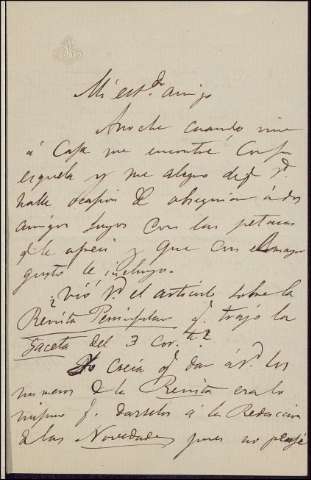 Mi est.do amigo
Anoche cuando vine
á Casa me encontré Con su
esquela y me alegro de q.e V.
halle ocasion de obsequiar á dos
amigos suyos con las petacas
q.e le ofreci y que con el mayor
gusto le incluyo.
¿Vió V. el articulo sobre la
Revista Peninsular q.e trajo la
Gaceta del 3 Cor.te?
Yo Creia q.e dar á V. los
numeros de la Revista era lo
mismo q.e darselos á la Redaccion
de las Novedades, pues no pensé